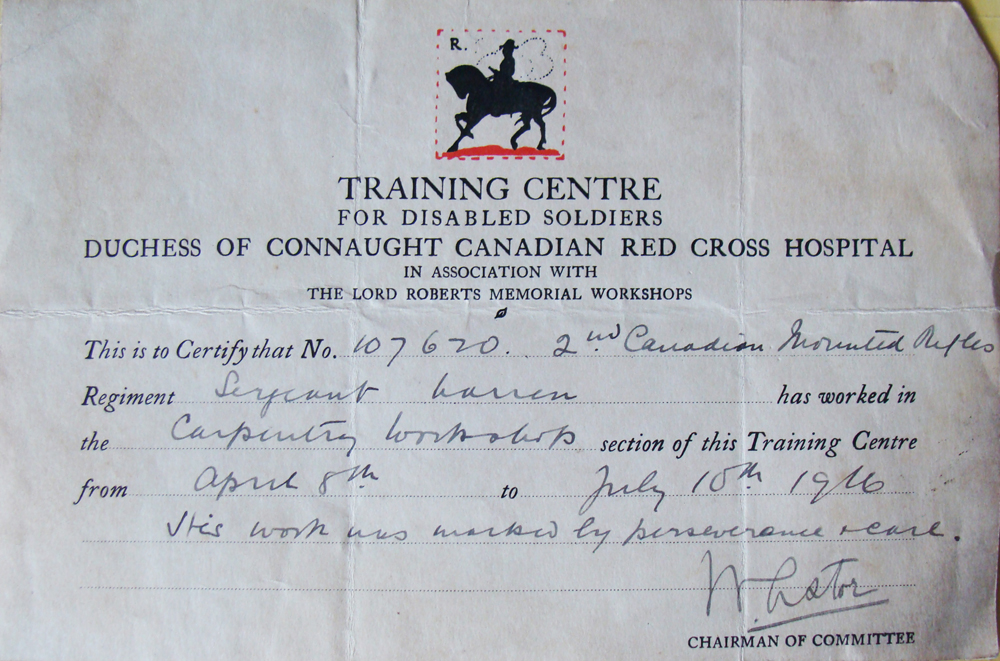 R.
TRAINING CENTRE
FOR DISABLED SOLDIERS
DUCHESS OF CONNAUGHT CANADIAN RED CROSS HOSPITAL
IN ASSOCIATION WITH
THE LORD ROBERTS MEMORIAL WORKSHOPS
This is to Certify that No. 107620. 2nd Canadian Mounted Rifles
Regiment Sergeant Warren has worked in
the Carpentry Workshop section of this Training Centre
from April 8th to July 10th 1916
His work was marked by perseverance & care.
W. Astor
CHAIRMAN OF COMMITTEE